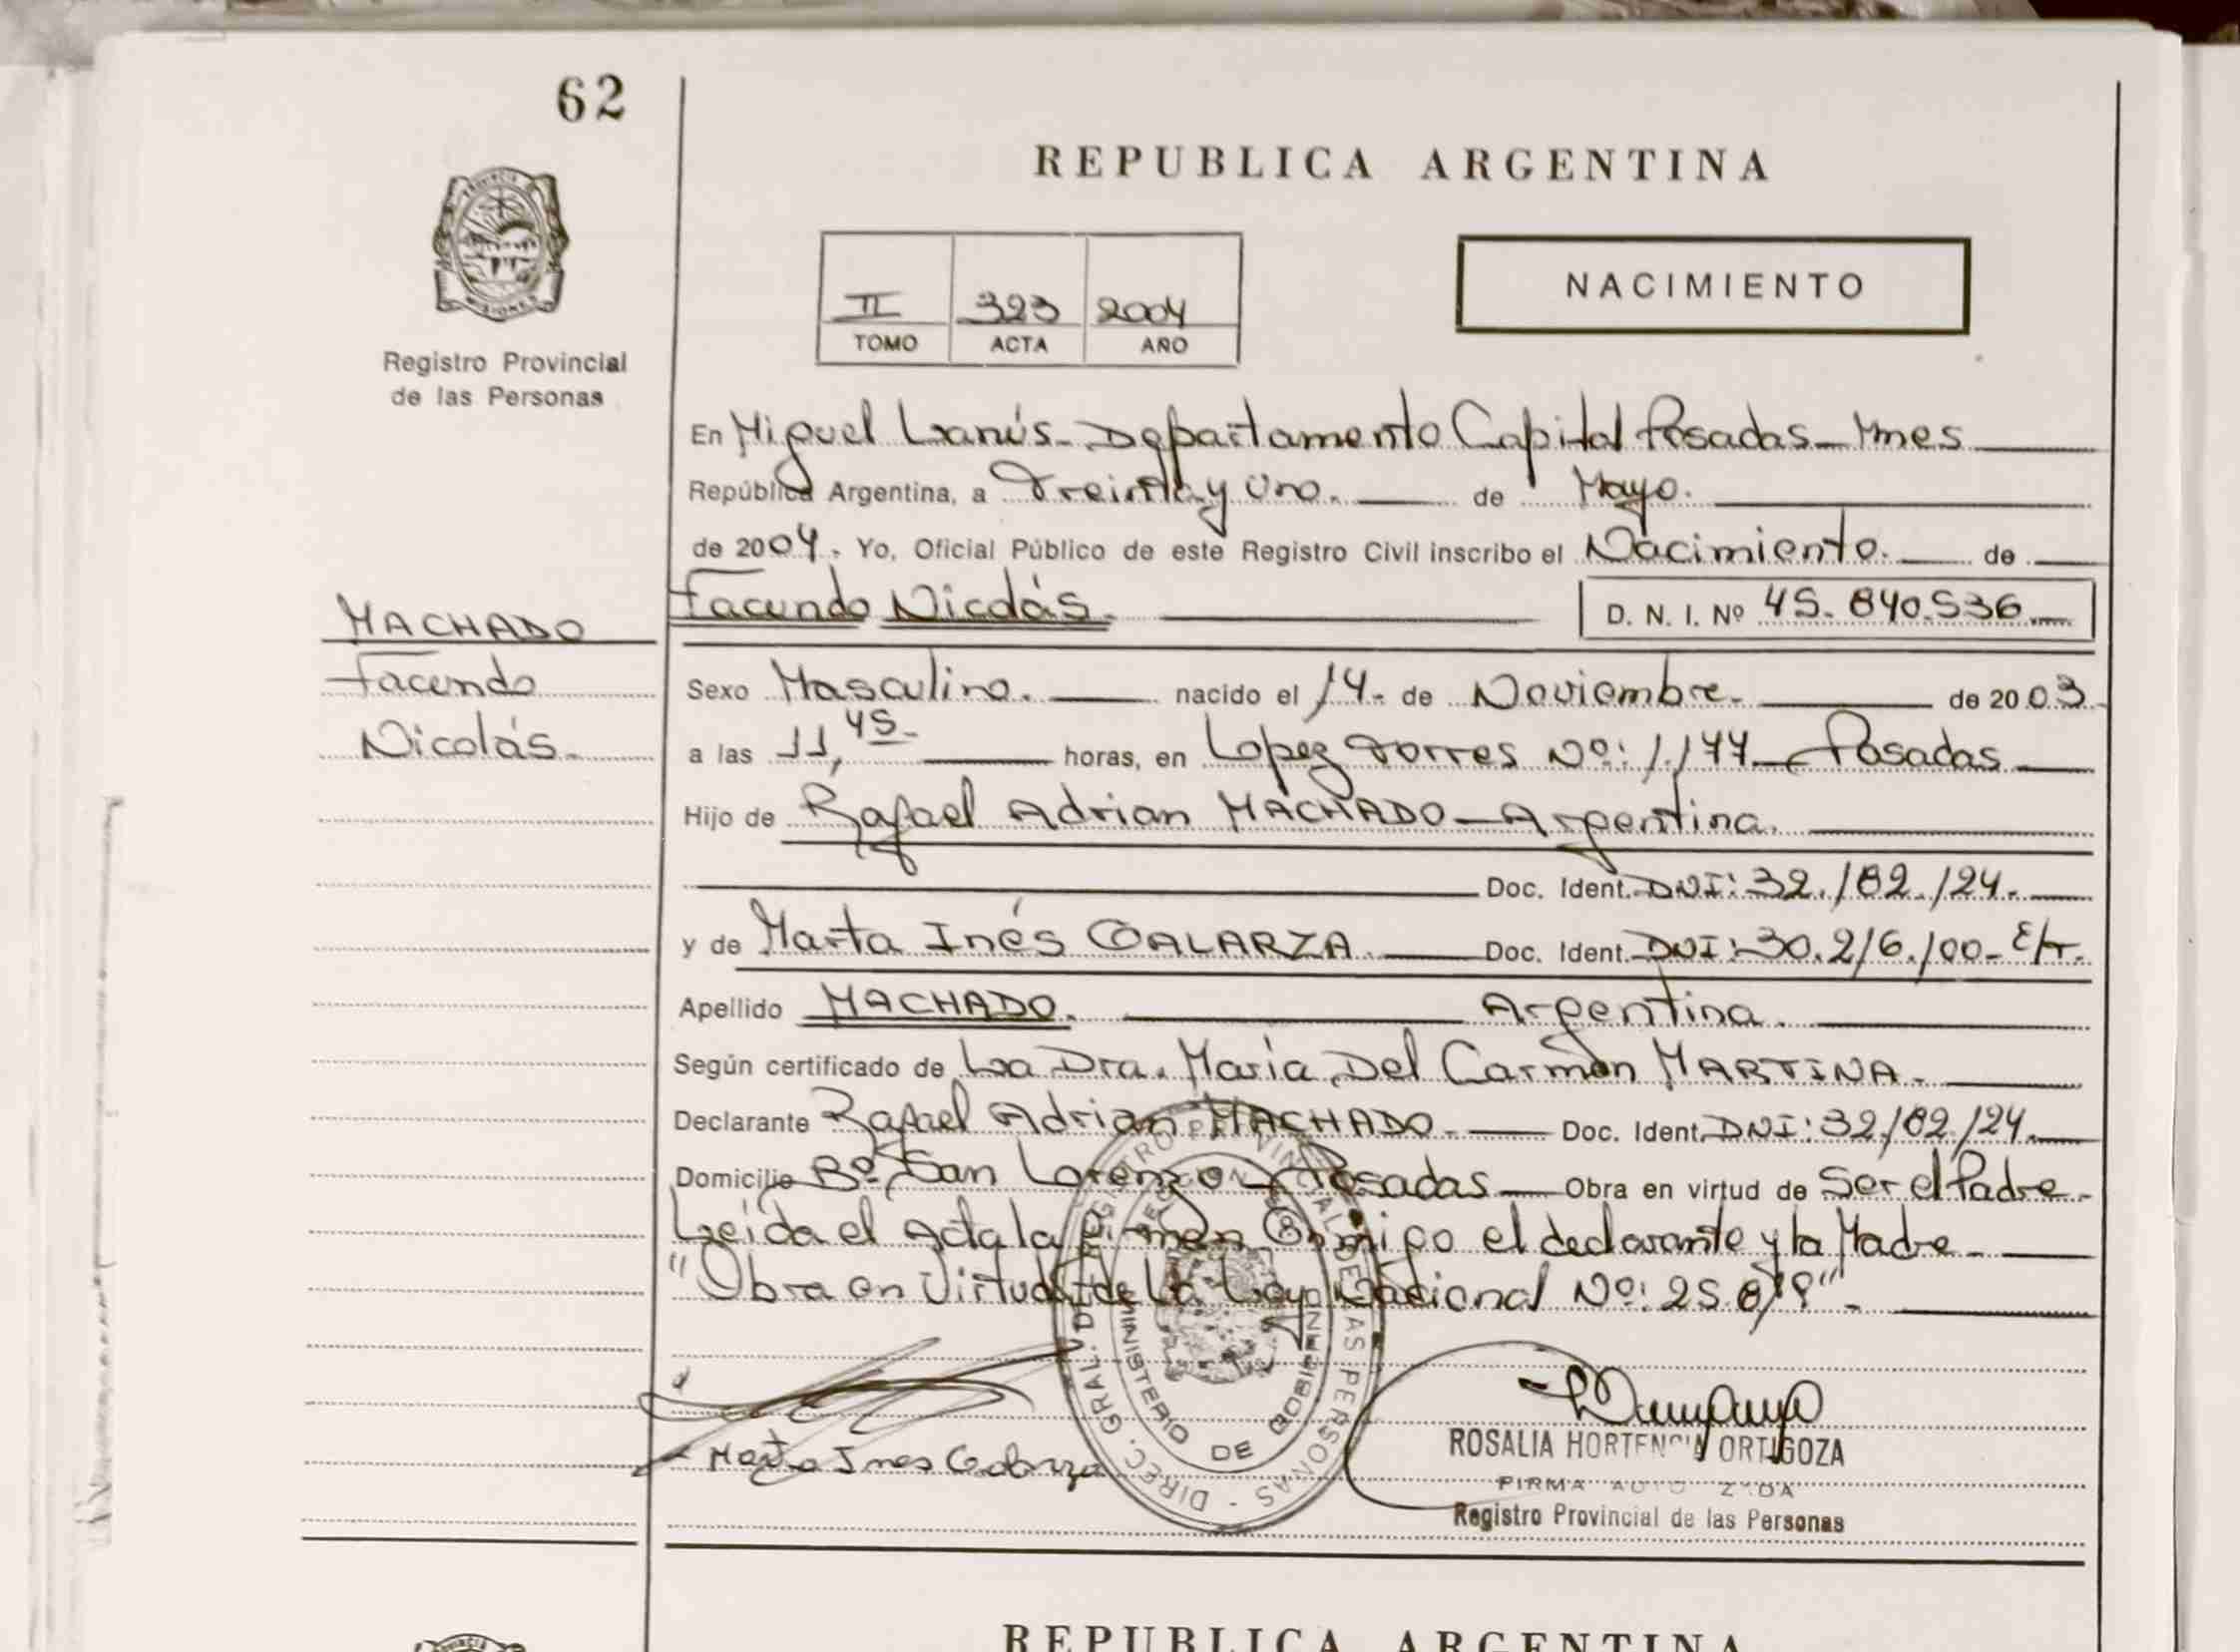 62
REPUBLICA ARGENTINA
PROVINCIA
MISIONES
Registro Provincial
de las Personas
II 323 2004
TOMO ACTA AÑO
NACIMIENTO
En Miguel Lanús - Departamento Capital Posadas - Mnes
República Argentina, a Treinta y Uno. de Mayo.
de 2004. Yo, Oficial Público de este Registro Civil inscribo el Nacimiento. de
Facundo Nicolás. D. N. I. Nº 45.840.536
MACHADO
Facundo
Nicolás.
Sexo Masculino. nacido el 14. de Noviembre. de 2003.
a las 11,45- horas, en Lopez Torres Nº: 1.177 - Posadas
Hijo de Rafael Adrian MACHADO - Argentina.
Doc. Ident. DNI: 32.182.124.
y de Marta Inés GALARZA. Doc. Ident. DNI: 30.216.100-
Apellido MACHADO. Argentina.
Según certificado de La Dra. María Del Carmen MARTINA.
Declarante Rafael Adrian MACHADO. Doc. Ident. DNI: 32.182.124.
Domicilio Bº San Lorenzo - Posadas - Obra en virtud de Ser el Padre.
Leída el Acta la firman Conmigo el declarante y la Madre -
"Obra en Virtud de La Ley Nacional Nº: 25.819".
DIREC. GRAL. DEL REGISTRO PROVINCIAL DE LAS PERSONAS
MINISTERIO DE GOBIERNO
Marta Ines Galarza
ROSALIA HORTENCIA ORTIGOZA
FIRMA AUTORIZADA
Registro Provincial de las Personas
REPUBLICA ARGENTINA